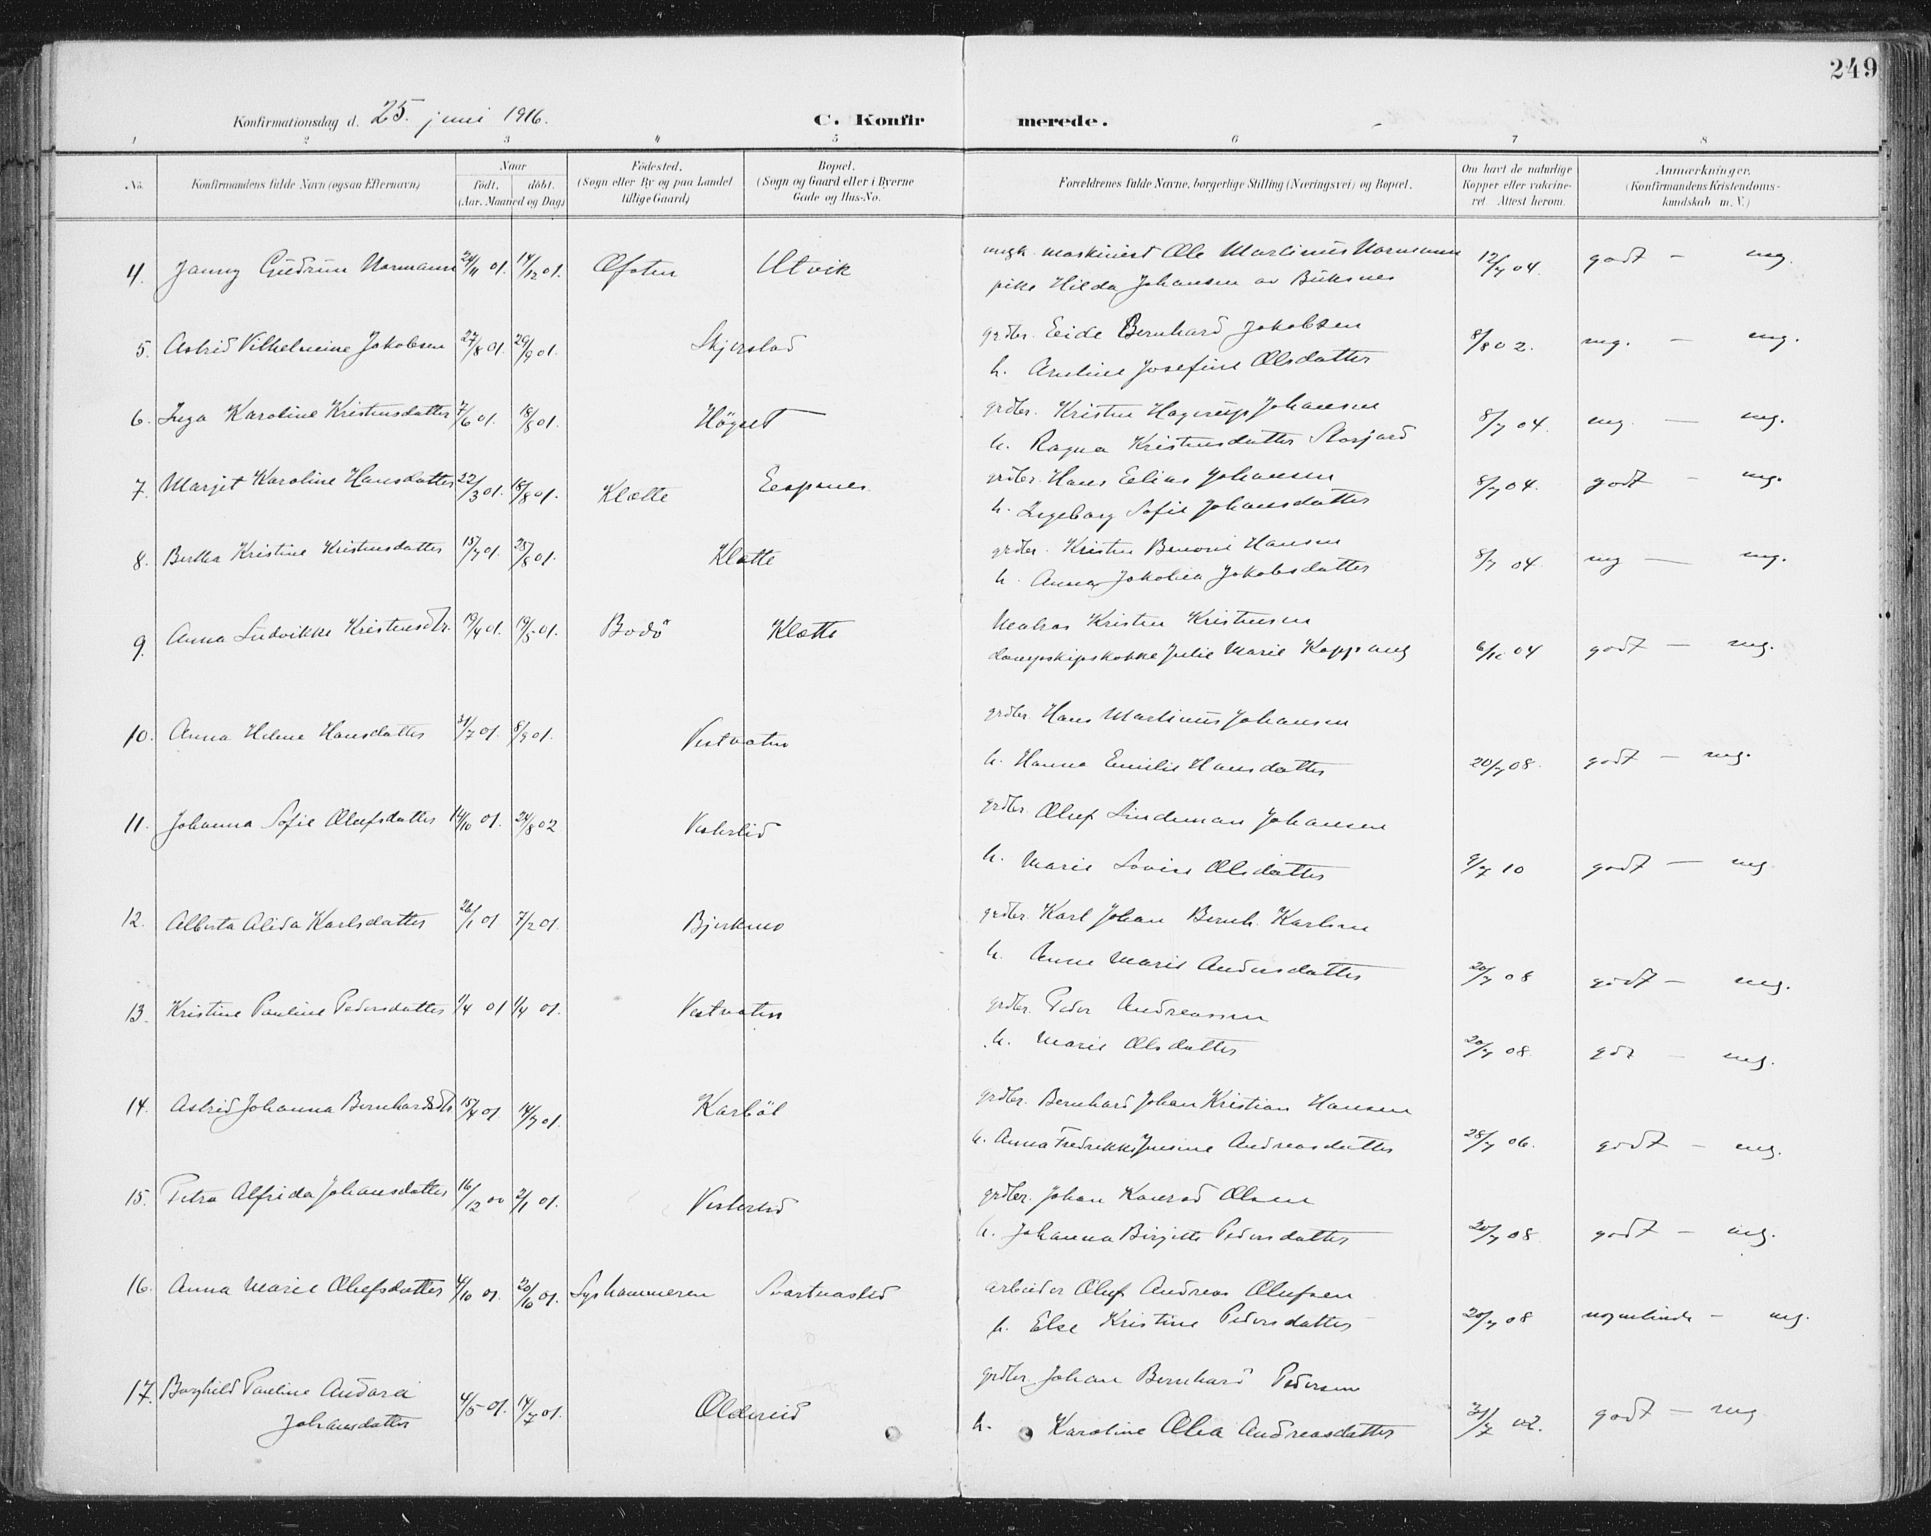 249
Konfirmationsdag d. 25. juni 1916.
C. Konfirmerede.
1 2 3 4 5 6 7 8
No.
Konfirmandens fulde Navn (ogsaa Efternavn)
Naar
født. døbt.
(Aar. Maaned og Dag)
Fødested.
(Sogn eller By og paa Landet
tillige Gaard)
Bopæl.
(Sogn og Gaard eller i Byerne
Gade og Hus-No.
Forældrenes fulde Navne, borgerlige Stilling (Næringsvei) og Bopæl.
Om havt de naturlige
Kopper eller vakcine-
ret Attest herom.
Anmærkninger.
(Konfirmandens Kristendoms-
kundskab m. V.)
4. Janny Gudrun Normann 24/11 01. 14/12 01. Ofoten Utvik ungk. maskinist Ole Martinus Normann 12/7 04 godt — mg.
pike Hilda Johansen av Buksnes
5. Astrid Vilhelmine Jakobsen 27/8 01. 29/9 01. Skjerstad grdbr. Eide Bernhard Jakobsen 8/8 02. mg. — mg.
h. Arntine Josefine Olsdatter
6. Inga Karoline Kristensdatter 7/6 01. 18/8 01. Høgset grdbr. Kristen Hagerup Johansen 8/7 04. mg. — mg.
h. Ragna Kristensdatter Storjord
7. Marjet Karoline Hansdatter 22/3 01. 18/8 01. Klætte Eespenes grdbr. Hans Eelias Johansen 8/7 04. godt — mg.
h. Ingeborg Sofie Johansdatter
8. Bertha Kristine Kristensdatter 15/7 01. 25/8 01. Klætte grdbr. Kristen Benoni Hansen 8/7 04. mg — mg.
h. Anna Jakobea Jakobsdatter
9. Anna Ludvikke Kristensdtr. 19/4 01. 19/5 01. Bodø Klætte Matros Kristen Kristensen
Dampskipskokke Julie Marie Koppang 6/10 04 godt — mg.
10. Anna Helene Hansdatter 31/7 01. 8/9 01. Vestvatn grdbr Hans Martinus Johansen
h. Hanna Emilie Hansdatter 20/7 08. godt — mg.
11. Johanna Sofie Olufsdatter 14/10 01. 24/8 02 Vesterlid grdbr Oluf Lindeman Johansen
h. Marie Lovise Olsdatter 9/7 10 godt — mg
12. Alberta Alida Karlsdatter 26/1 01 7/2 01. Bjerkmo grdbr. Karl Johan Bernh. Karlsen
h. Anne Marie Andersdatter 20/7 08 godt — mg.
13. Kristine Pauline Pedersdatter 1/4 01 1/4 01. Vestvatn grdbr. Peder Andreassen
h. Marie Olsdatter 20/7 08. gdt — mg.
14. Astrid Johanna Bernhardsdtr 15/4 01 14/7 01. Karbøl grdbr. Bernhard Johan Kristian Hansen
h. Anna Fredrikke Jensine Andreasdatter 28/7 06. godt — mg.
15. Petra Alfrida Johansdatter 16/12 00 2/1 01. Vesterlid grdbr. Johan Konrad Olsen
h. Johanna Birgitte Pedersdatter 20/7 08. godt — mg.
16. Anna Marie Olufsdatter 4/10 01. 20/10 01. Lyshammeren Svartvaslid arbeider Oluf Andreas Olufsen
h. Else Kristine Pedersdatter 20/7 08 nogenlunde — mg.
17. Borghild Pauline Andora 4/5 01. 14/7 01. Oldereid grdbr Johan Bernhard Pedersen
Johansdatter h. Karoline Olea Andreasdatter 31/7 02. godt — mg